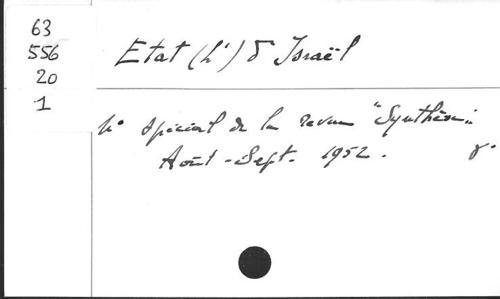 63
556
20
1
Etat (L') d'Israël
n° spécial de la revue "Synthèses"
Août - Sept. 1952.